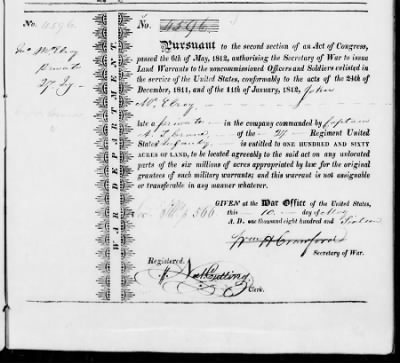 No. 4596.
No. 4596.
Jno McElroy
Private
27 Inf
WAR DEPARTMENT
Pursuant to the second section of an Act of Congress,
passed the 6th of May, 1812, authorising the Secretary of War to issue
Land Warrants to the noncommissioned Officers and Soldiers enlisted in
the service of the United States, conformably to the acts of the 24th of
December, 1811, and of the 11th of January, 1812, John
McElroy
late a private in the company commanded by Captain
A. L. of the 27 Regiment United
States Infantry is entitled to ONE HUNDRED AND SIXTY
ACRES OF LAND, to be located agreeably to the said act on any unlocated
parts of the six millions of acres appropriated by law for the original
grantees of such military warrants; and this warrant is not assignable
or transferable in any manner whatever.
GIVEN at the War Office of the United States,
566 this 10 day of May
A. D. one thousand eight hundred and Sixteen
Wm H Crawford
Secretary of War.
Registered.
Nathl Cutting
Clerk.